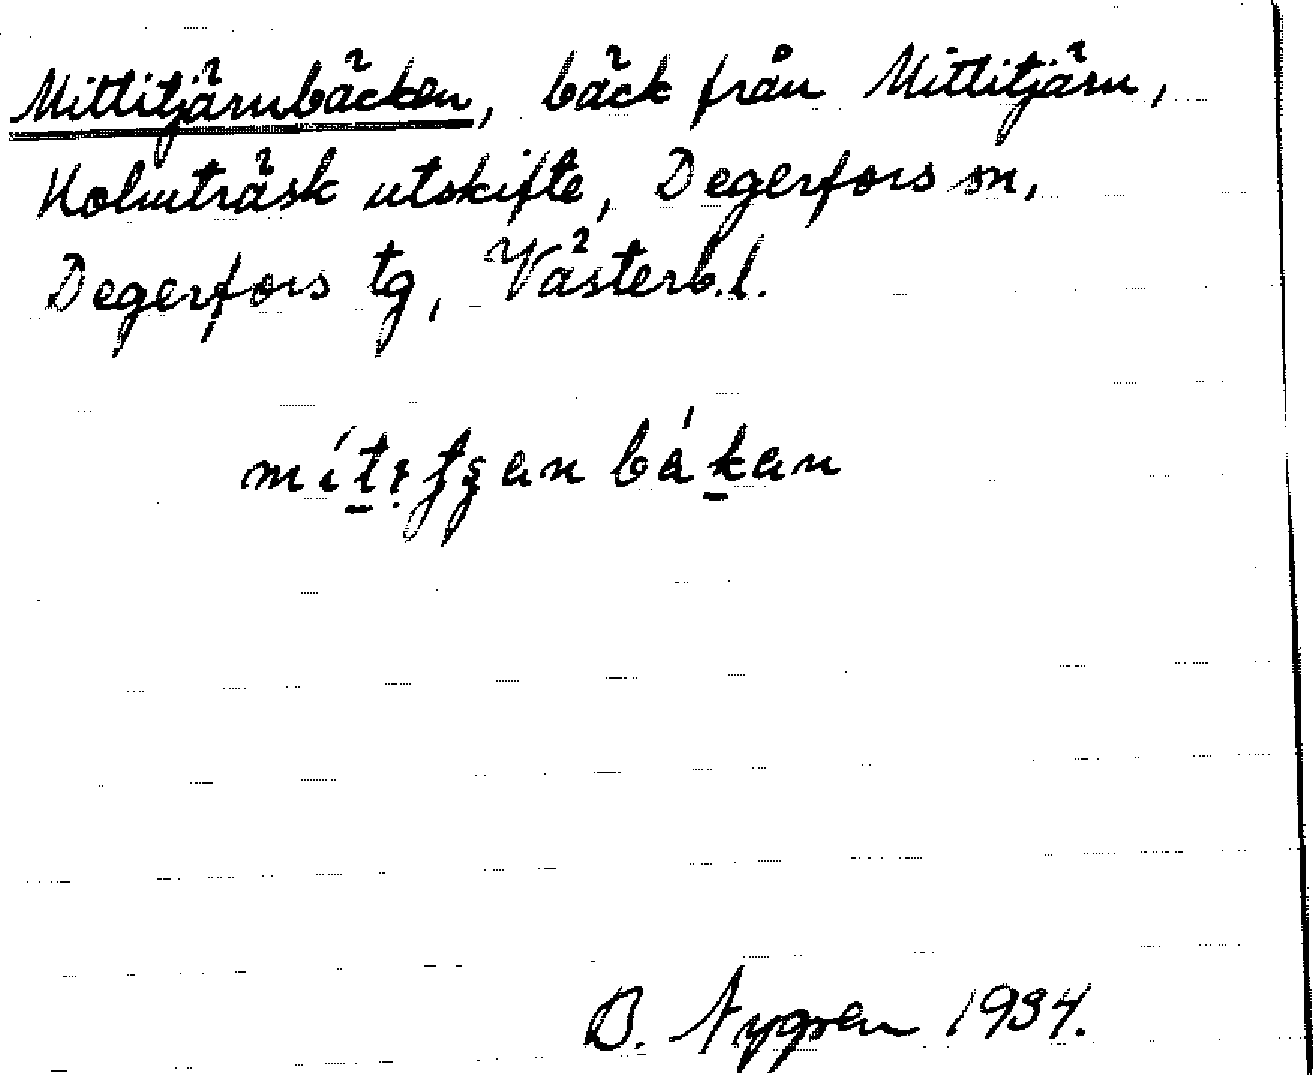 Mittitjärnbäcken, bäck från Mittitjärn,
Holmträsk utskifte, Degerfors sn,
Degerfors tg, Västerb.l.
B. Nygren 1934.